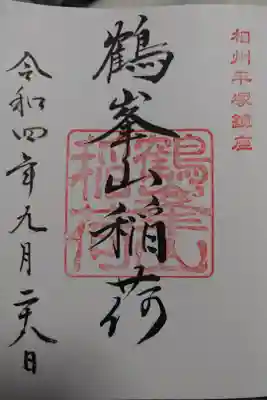 相州平塚鎮座
鶴峯山稲荷
鶴峯山稲荷
令和四年九月二八日